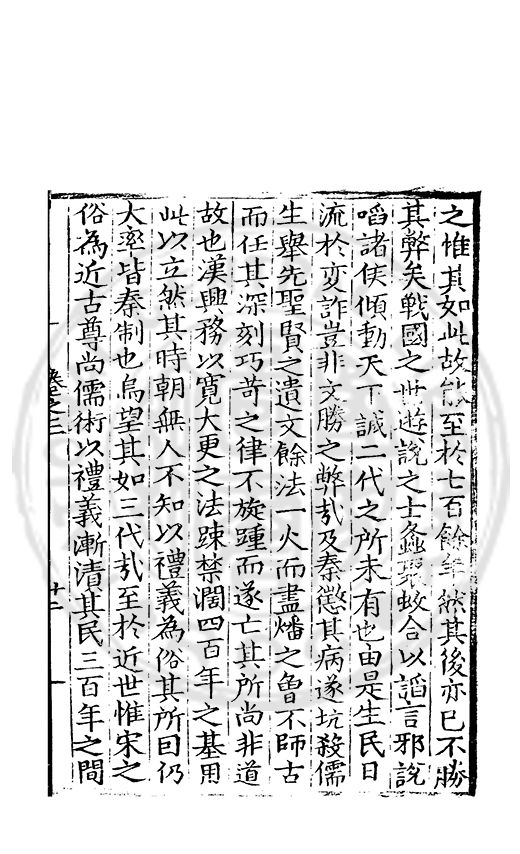 之惟其如此故能至於七百餘年然其後亦已不勝
其弊矣戰國之世遊說之士螽聚蛟合以謟言邪說
㗖諸侯傾動天下誠二代之所未有也由是生民日
流於变詐豈非文勝之弊㢤及秦懲其病遂坑殺儒
生舉先聖賢之遺文餘法一火而盡燔之曾不師古
而任其深刻巧苛之律不旋踵而遂亡其所尚非道
故也漢興務以寬大更之法踈禁濶四百年之基用
此以立然其時朝無人不知以禮義為俗其所因仍
大率皆秦制也烏望其如三代㢤至於近世惟宋之
俗為近古尊尚儒術以禮義漸漬其民三百年之間
卷之三
十二